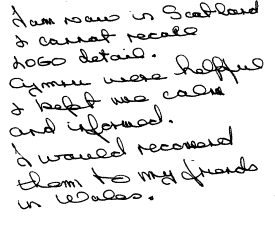 I am now in Scotland
I cannot recale
LOGO detail.
Cymru were helpful
I kept me calm
and informed.
I would recomend
them to my friends
in Wales.